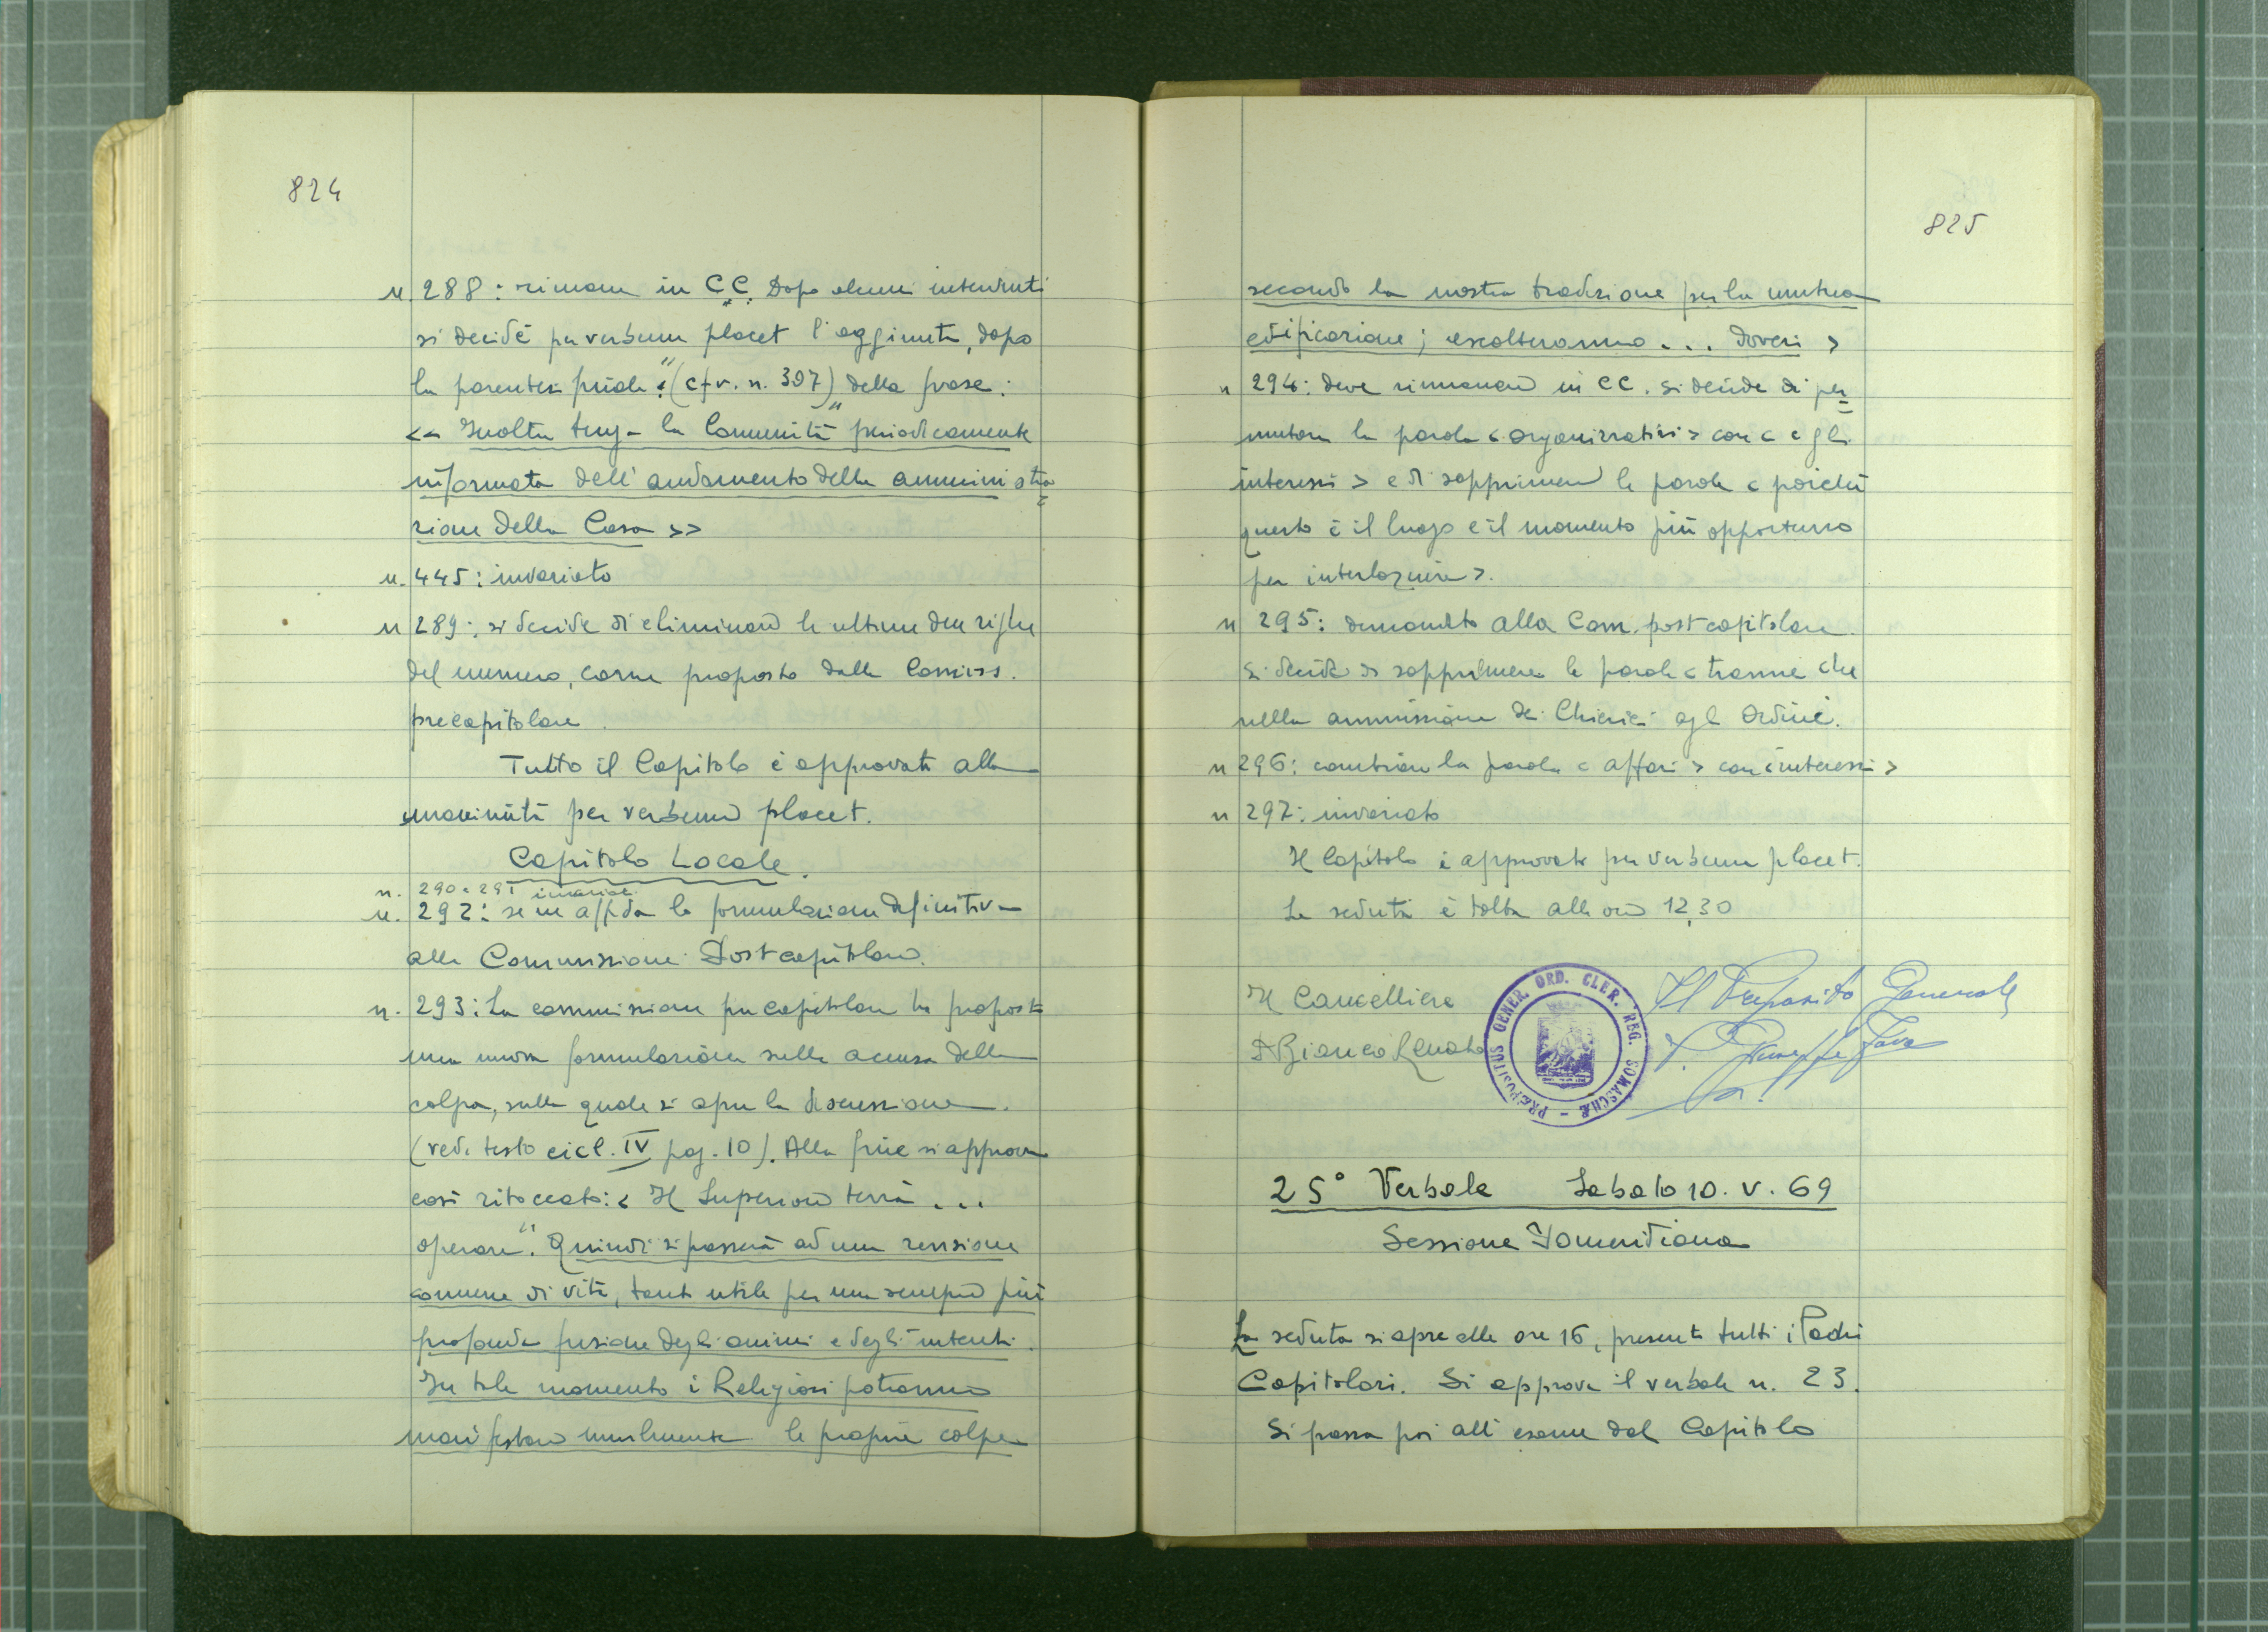 824
n. 288: rimane in CC. Dopo alcuni interventi
si decide per verbum placet l'aggiunta, dopo
la parentesi finale "(cfr. n. 397)" della frase:
<< Inoltre tenga la Comunità periodicamente
informata dell'andamento della amministra=
zione della Casa >>
n. 445: invariato
n 289: si decide di eliminare le ultime due righe
del numero, come proposto dalla Commiss.
precapitolare.
Tutto il Capitolo è approvato alla
unanimità per verbum placet.
Capitolo Locale.
n. 290 e 291 invariati
n. 292: se ne affida la formulazione definitiva
alla Commissione Postcapitolare.
n. 293: La commissione precapitolare ha proposto
una nuova formulazione sulla accusa della
colpa, sulla quale si apre la discussione.
(vedi testo cicl. IV pag. 10). Alla fine si approva
così ritoccato: < Il Superiore terrà ...
operare". Quindi si passerà ad una revisione
comune di vita, tanto utile per una sempre più
profonda fusione degli animi e degli intenti.
In tale momento i Religiosi potranno
manifestare umilmente le proprie colpe
825
secondo la nostra tradizione per la mutua
edificazione; ascolteranno... doveri >
n 294: deve rimanere in CC. Si decide di per=
mutare la parola < organizzativi > con < e gli
interessi > e di sopprimere le parole < poiché
questo è il luogo e il momento più opportuno
per interloquire >.
n 295: demandato alla Com. postcapitolare.
Si decide di sopprimere le parole < tranne che
nella ammissione dei Chierici agli Ordini.
n 296: cambiare la parola < affari > con < interessi >
n 297: invariato
Il Capitolo è approvato per verbum placet.
La seduta è tolta alle ore 12,30
Il Cancelliere
P. Bianco Renato
Il Preposito Generale
P. Giuseppe Fava
PRÆPOSITUS GENER. ORD. CLER. REG. SOMASCHÆ
25° Verbale Sabato 10. V. 69
Sessione Pomeridiana
La seduta si apre alle ore 16, presenti tutti i Padri
Capitolari. Si approva il verbale n. 23.
Si passa poi all'esame del Capitolo